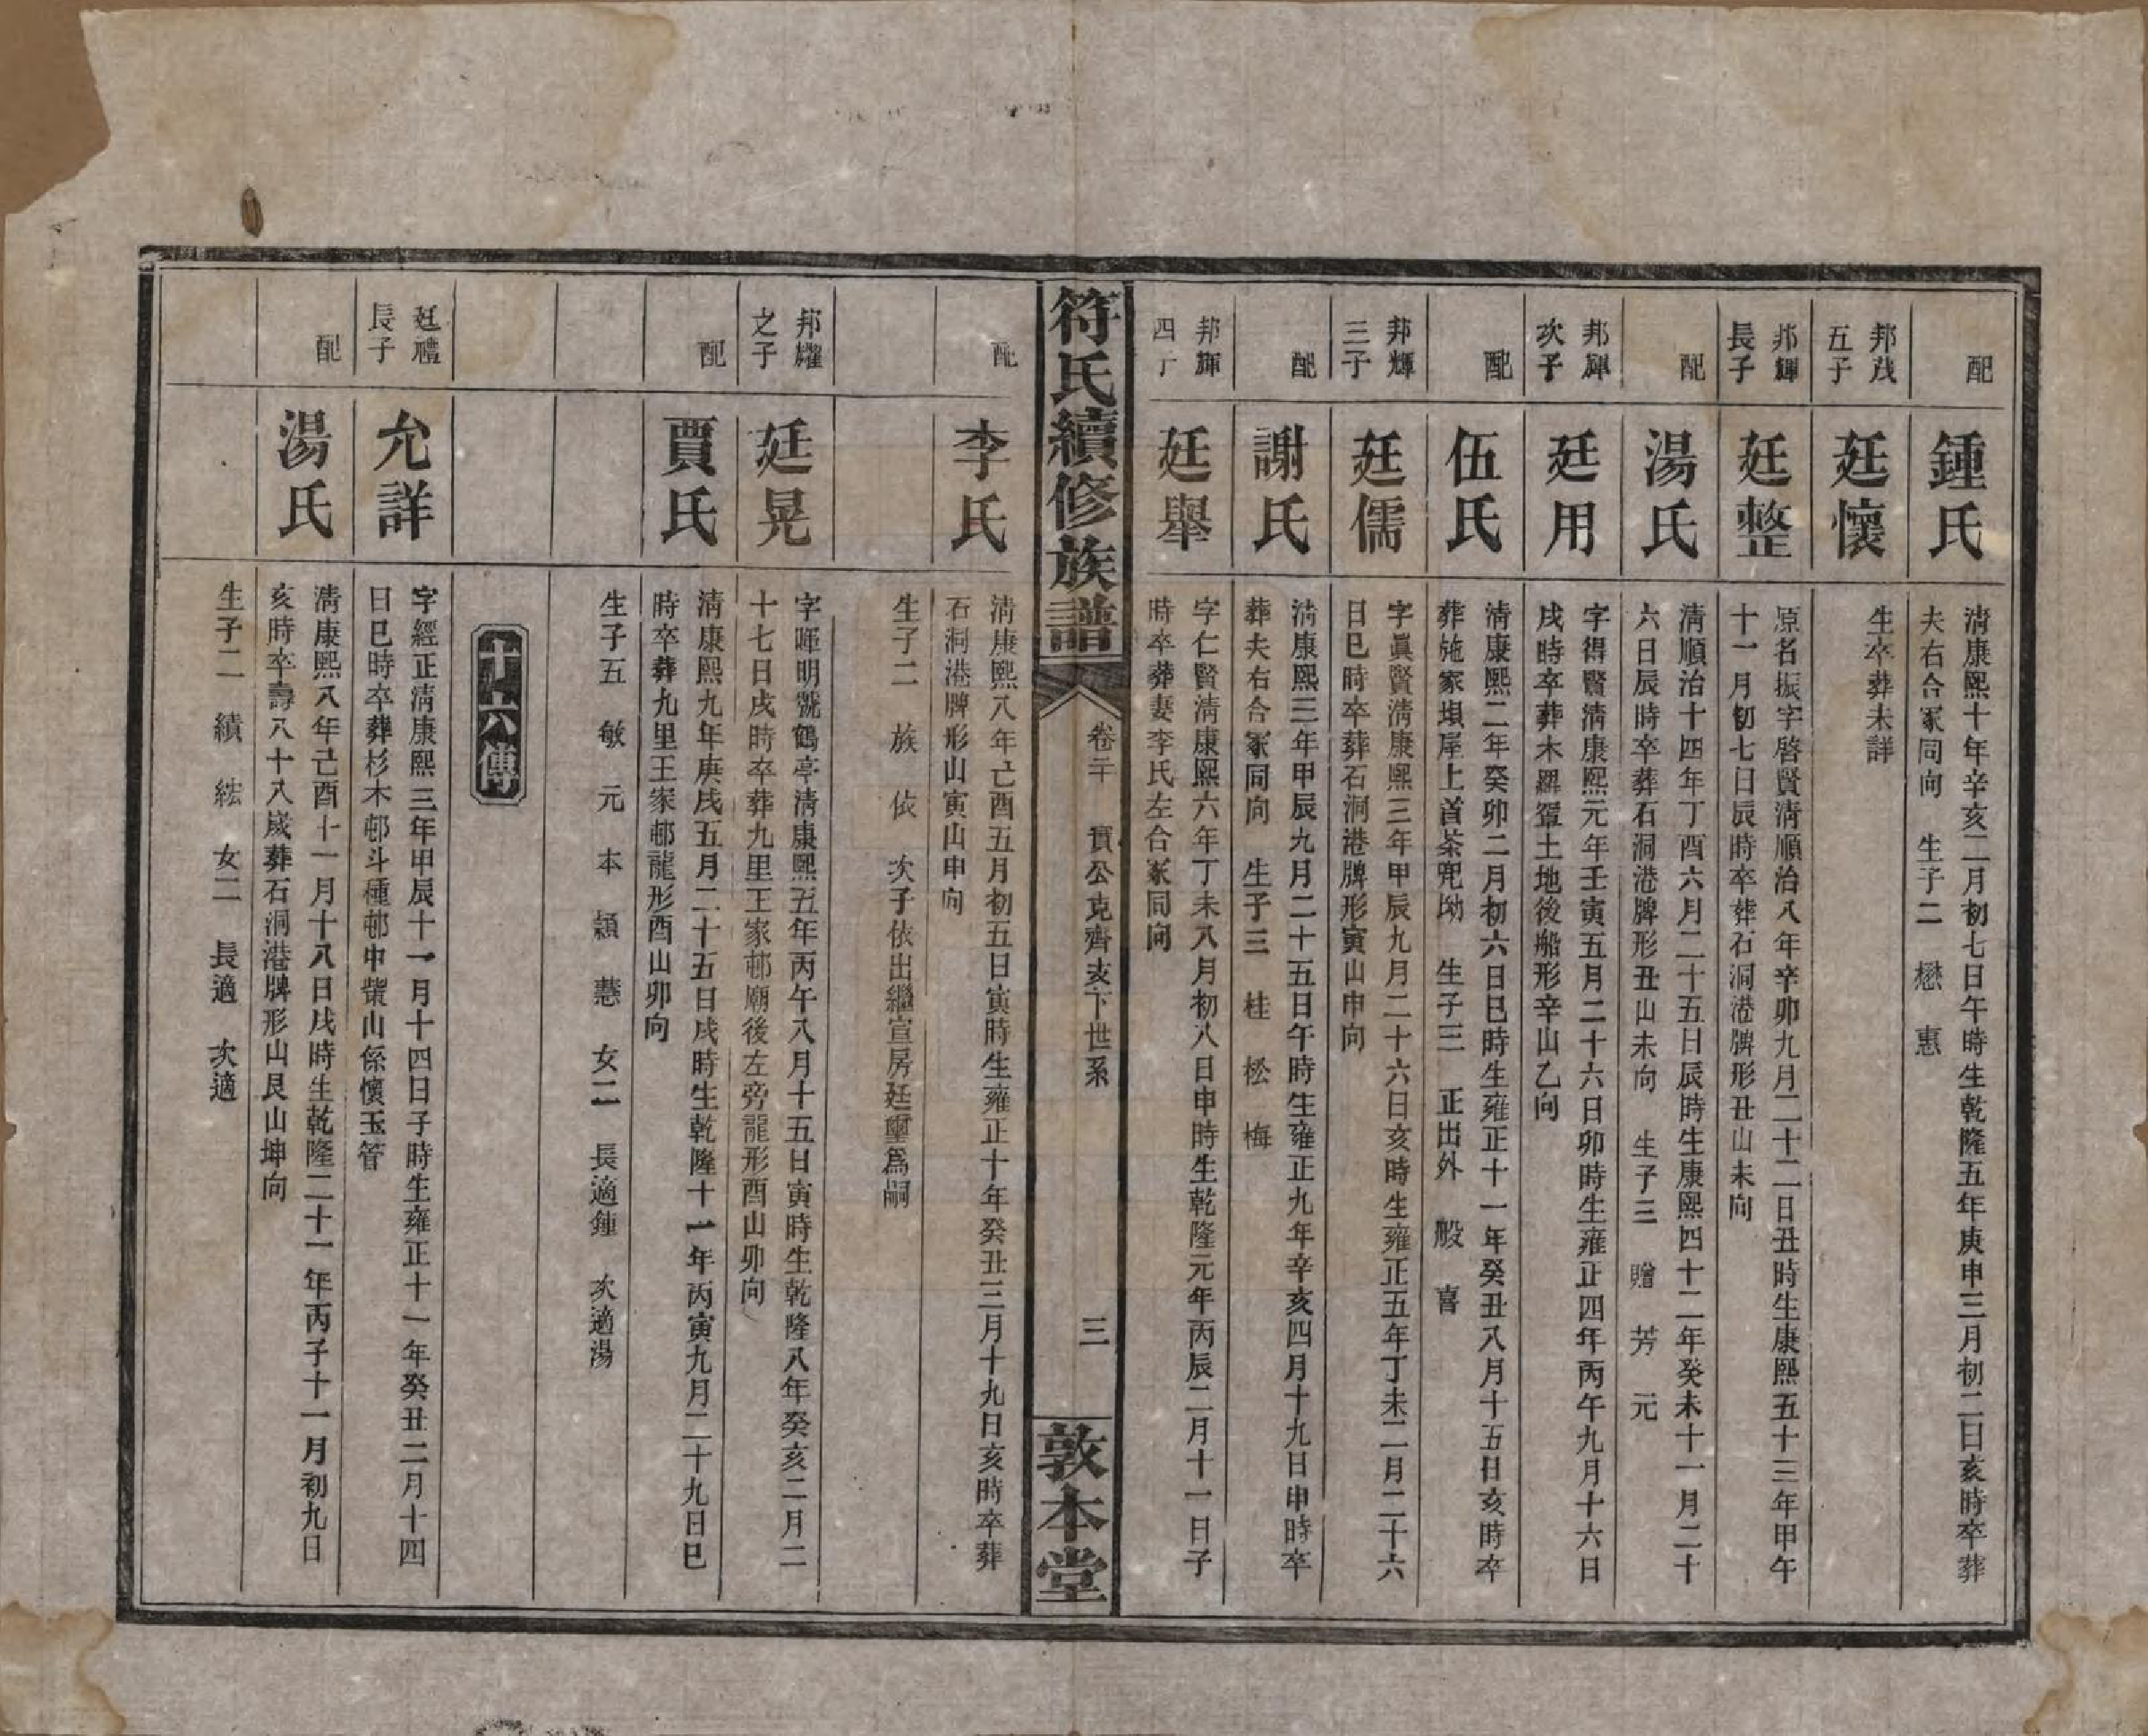 配
鍾氏
清康熙十年辛亥二月初七日午時生乾隆五年庚申三月初二日亥時卒葬
夫右合冢同向　生子二　懋　惠
邦茂
五子
廷懷
生卒葬未詳
邦輝
長子
廷整
原名振字啓賢清順治八年辛卯九月二十二日丑時生康熙五十三年甲午
十一月初七日辰時卒葬石洞港牌形丑山未向
配
湯氏
清順治十四年丁酉六月二十五日辰時生康熙四十二年癸未十一月二十
六日辰時卒葬石洞港牌形丑山未向　生子三　贈　芳　元
邦輝
次子
廷用
字得賢清康熙元年壬寅五月二十六日卯時生雍正四年丙午九月十六日
戌時卒葬木羅疍土地後船形辛山乙向
配
伍氏
清康熙二年癸卯二月初六日巳時生雍正十一年癸丑八月十五日亥時卒
葬施家垻屋上首茶兜坳　生子三　正出外　般　喜
邦輝
三子
廷儒
字眞賢清康熙三年甲辰九月二十六日亥時生雍正五年丁未二月二十六
日巳時卒葬石洞港牌形寅山申向
配
謝氏
清康熙三年甲辰九月二十五日午時生雍正九年辛亥四月十九日申時卒
葬夫右合冢同向　生子三　桂　松　梅
邦輝
四子
廷舉
字仁賢清康熙六年丁未八月初八日申時生乾隆元年丙辰二月十一日子
時卒葬妻李氏左合冢同向
符氏續修族譜
卷二十　貫公克齊支下世系
三
敦本堂
配
李氏
清康熙八年己酉五月初五日寅時生雍正十年癸丑三月十九日亥時卒葬
石洞港牌形山寅山申向
生子二　族　依　次子依出繼宣房廷璽爲嗣
邦耀
之子
廷晃
字暉明號鶴亭清康熙五年丙午八月十五日寅時生乾隆八年癸亥二月二
十七日戌時卒葬九里王家邨廟後左旁龍形酉山卯向
配
賈氏
清康熙九年庚戌五月二十五日戌時生乾隆十一年丙寅九月二十九日巳
時卒葬九里王家邨龍形酉山卯向
生子五　敏　元　本　顯　慧　女二　長適鍾　次適湯
十六傳
廷禮
長子
允詳
字經正清康熙三年甲辰十一月十四日子時生雍正十一年癸丑二月十四
日巳時卒葬杉木邨斗種邨中柴山係懷玉管
配
湯氏
清康熙八年己酉十一月十八日戌時生乾隆二十一年丙子十一月初九日
亥時卒壽八十八歲葬石洞港牌形山艮山坤向
生子二　績　紘　女二　長適　次適